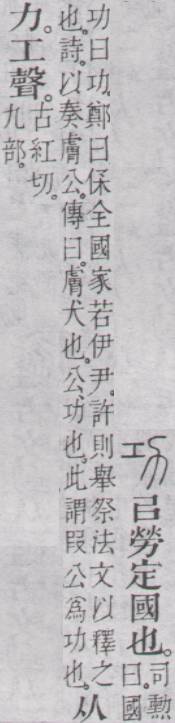 功 㠯勞定國也。
司勳
曰。國
功曰功。鄭曰保全國家若伊尹。許則舉祭法文以釋之
也。詩。以奏膚公。傳曰。膚大也。公、功也。此謂叚公爲功也。
从
力。工聲。
古紅切。
九部。